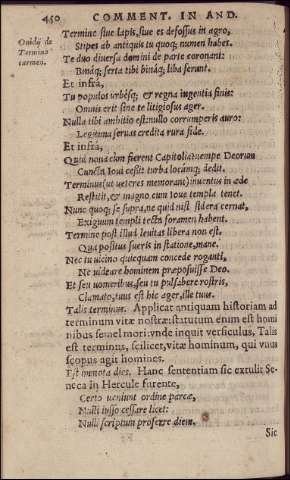 450 COMMENT. IN AND.
Ouidij de
Termino
carmen.
Termine siue lapis, siue es defossus in agro,
Stipes ab antiquis tu quoq; numen habes.
Te duo diuersa domini de parte coronant:
Bináq; serta tibi bináq; liba ferunt.
Et infrà,
Tu populos vrbésq; & regna ingentia finis:
Omnis erit sine te litigiosus ager.
Nulla tibi ambitio est: nullo corrumperis auro:
Legitima seruas credita rura fide.
Et infrà,
Quid noua cùm fierent Capitolia? nempe Deorum
Cuncta Ioui cessit turba locumq; dedit.
Terminus (ut ueteres memorant) inuentus in æde
Restitit, & magno cum Ioue templa tenet.
Nunc quoq; se supra, ne quid nisi sidera cernat,
Exiguum templi tecta foramen habent.
Termine post illud leuitas libera non est.
Qua positus fueris in statione, mane.
Nec tu uicino quicquam concede roganti,
Ne uideare hominem præposuisse Deo.
Et seu uomeribus, seu tu pulsabere rostris,
Clamato, tuus est hic ager, ille tuus.
Talis terminus. Applicat antiquam historiam ad
terminum vitæ nostræ: statutum enim est homi
nibus semel mori: vnde inquit versiculus, Talis
est terminus, scilicet, vitæ hominum, qui vnus
scopus agit homines.
Est immota dies. Hanc sententiam sic extulit Se-
neca in Hercule furente,
Certo ueniunt ordine parcæ,
Nulli iusso cessare licet:
Nulli scriptum proferre diem.
Sic